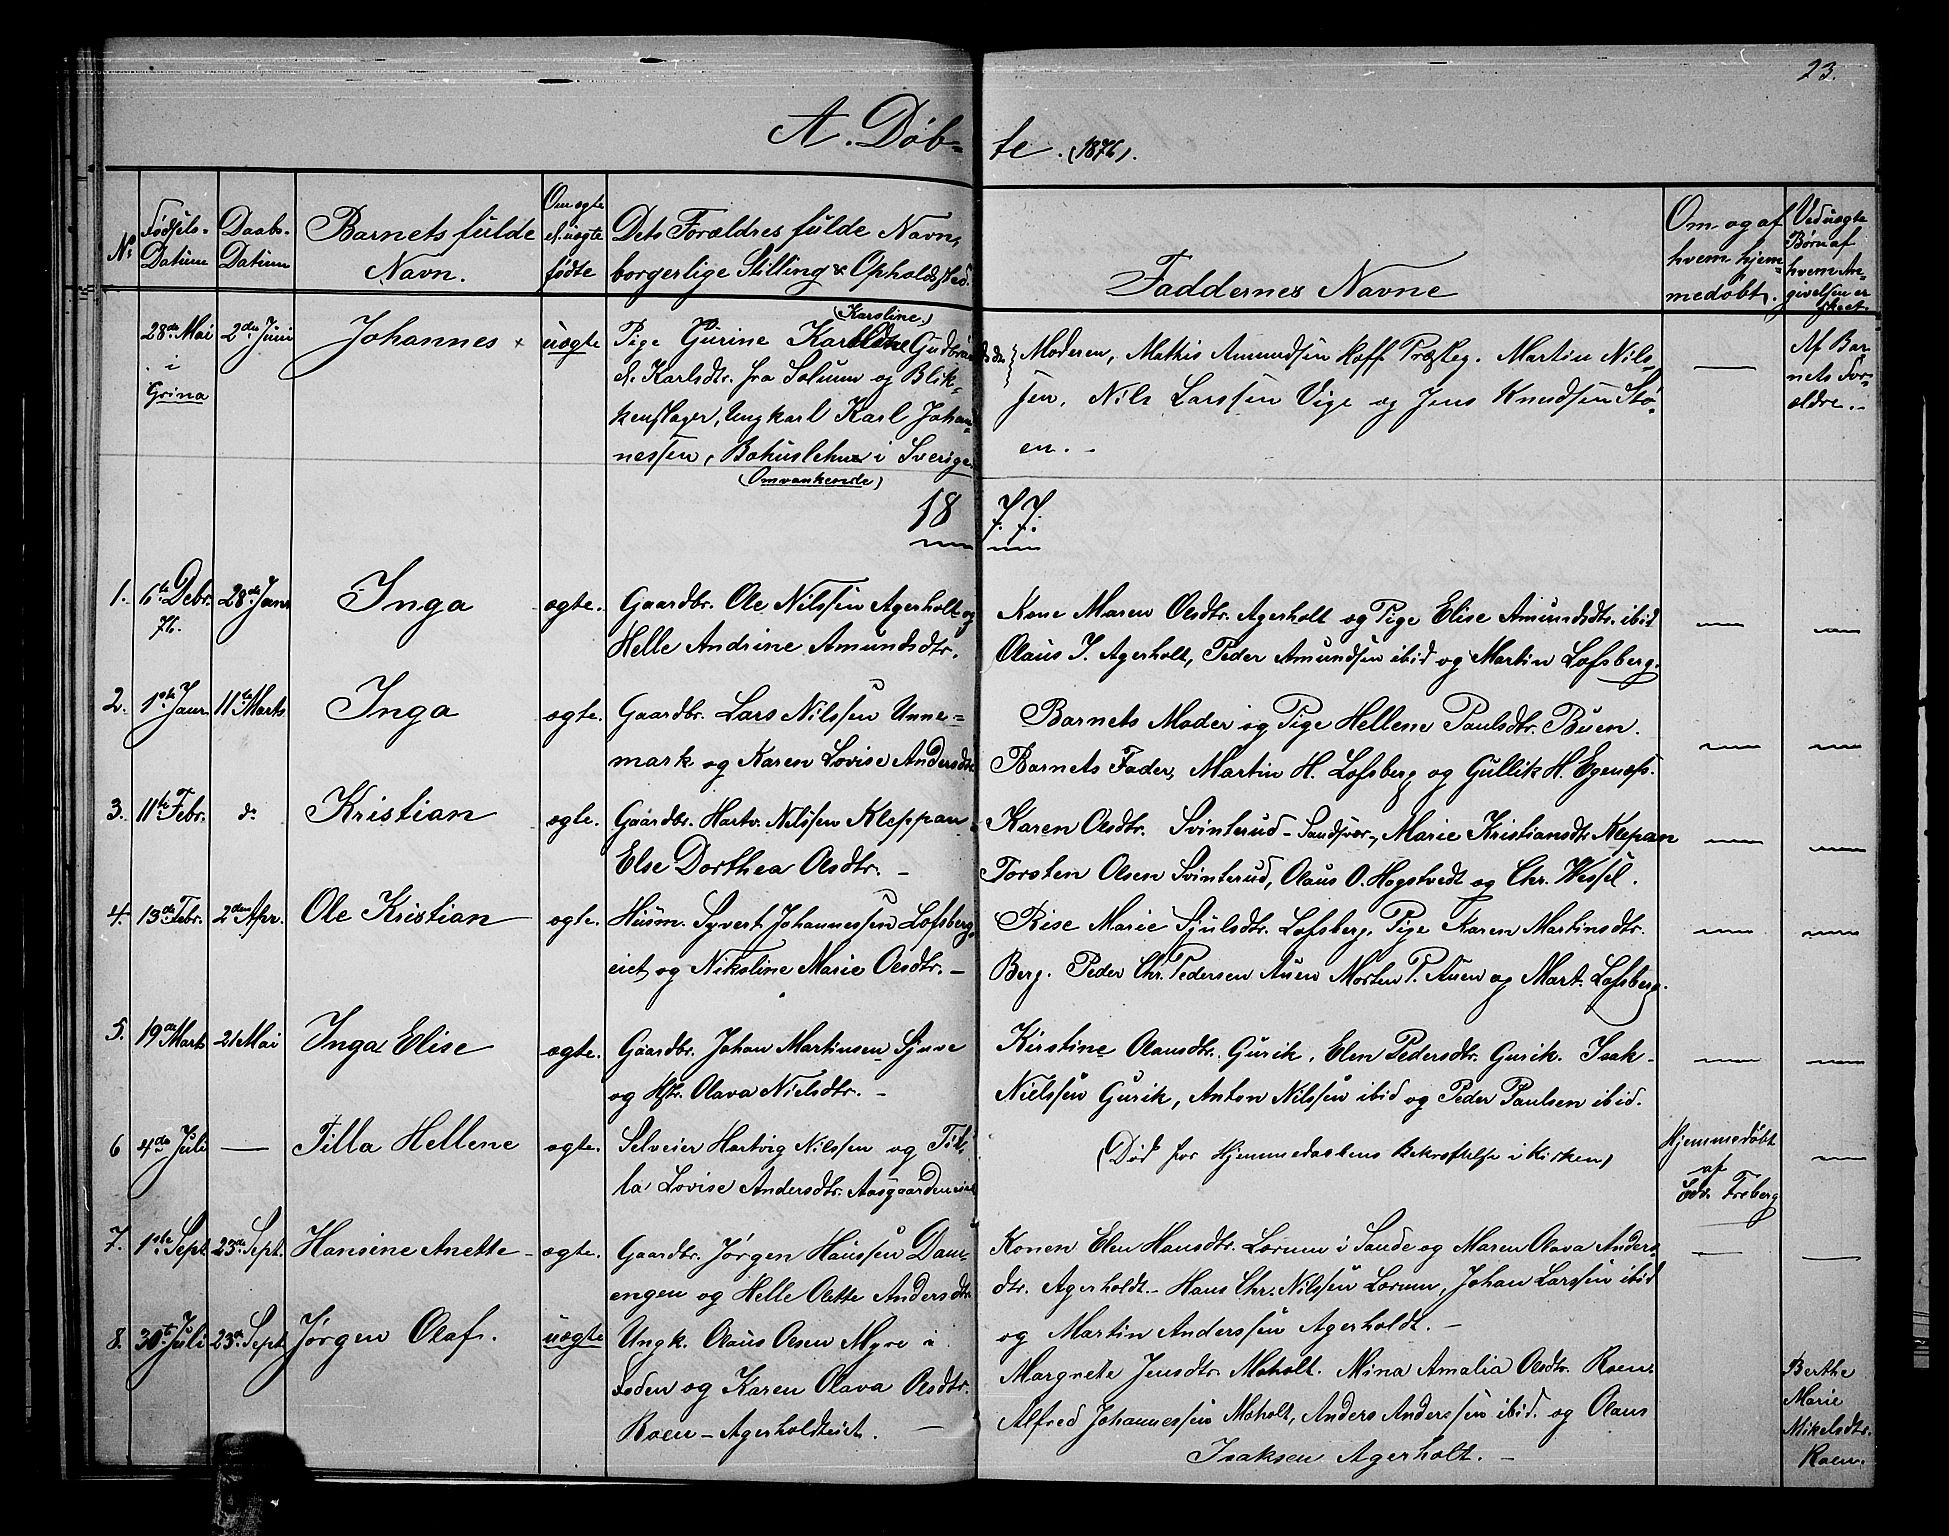 23.
A. Døb-
te. (1876).
No
Fødsels-
Datum
Daabs-
Datum
Barnets fulde
Navn.
Om ægte
el. uægte
fødte
Dets Forældres fulde Navn,
borgerlige Stilling & Opholdssted.
Faddernes Navne
Om og af
hvem hjem-
medøbt.
Ved uægte
Børn af
hvem An-
givelsen er
skeet.
28de Mai
i
Grina
2den Juni
Johannes
uægte
(Karoline)
Pige Gurine
el. Karlsdtr. fra Solum og Blik-
kenslager, Ungkarl Karl Johan-
nessen, Bohuslehn i Sverige.
(Omvankende)
Moderen, Mathis Amundsen Hoff Præsteg. Martin Nils-
sen, Nils Larssen Vige og Jens Knudsen Stø-
en. -
Af Bar-
nets For-
ældre. -
1877.
1. 6te Debr. 28de Janr Inga ægte. Gaardbr. Ole Nilssen Agerholt og
76.
Helle Andrine Amundsdtr.
Kone Maren Olsdtr. Agerholt og Pige Elise Amundsdtr. ibid
Olaus I. Agerholt, Peder Amundsen ibid og Martin Lofsberg.
2. 1ste Janr. 11te Marts Inga ægte. Gaardbr. Lars Nilssen Unne-
mark og Karen Lovise Andersdtr
Barnets Moder og Pige Hellene Paulsdtr. Buen.
Barnets Fader, Martin H. Lofsberg og Gullik H. Egenæs.
3. 11te Febr. do Kristian ægte. Gaardbr. Hartv. Nilssen Kleppan
Else Dorthea Olsdtr. -
Karen Olsdtr. Svinterud - Sandsvær -, Marie Kristiansdtr. Klepan
Torsten Olsen Svinterud, Olaus O. Hogstvedt og Chr. Wessel.
4. 13de Febr. 2den Apr. Ole Kristian ægte. Husm. Syvert Johannessen Lofsberg-
eiet og Nikoline Marie Olsdtr. -
Rise Marie Sjulsdtr. Lofsberg, Pige Karen Martinsdtr.
Berg. Peder Chr. Pedersen Auen Morten P. Auen og Mart. Lofsberg.
5. 19de Marts 21 Mai Inga Elise ægte. Gaardbr. Johan Martinsen Sjuve
og Hstr. Olava Nielsdtr. -
Kirstine Olausdtr. Gurik, Elen Pedersdtr. Gurik. Isak
Nielssen Gurik, Anton Nilssen ibid og Peder Paulsen ibid.
6 4de Juli — Tilla Hellene ægte. Selveier Hartvig Nilssen og Til-
la Lovise Andersdtr. Aasgaardeneiet
(Død før Hjemmedaabens Bekræftelse i Kirken)
Hjemmedøbt
af
Edv. Freberg
7. 1ste Sept. 23de Sept. Hansine Anette ægte. Gaardbr. Jørgen Hanssen Dam-
engen og Helle Olette Andersdtr.
Konen Elen Hansdtr. Lorum i Sande og Maren Olava Anders-
dtr. Agerholdt. - Hans Chr. Nilssen Lorum, Johan Larssen ibid
og Martin Anderssen Agerholdt. -
8. 30te Juli 23de Sept. Jørgen Olaf. uægte Ungk. Olaus Olsen Myre i
og Karen Olava Olsdtr.
Roen - Agerholdteiet. -
Margrete Jensdtr. Moholt. Mina Amalia Olsdtr. Roen.
Alfred Johannessen Moholt, Anders Anderssen ibid. og Olaus
Isaksen Agerholt. -
Berthe
Marie
Mikelsdtr.
Roen.